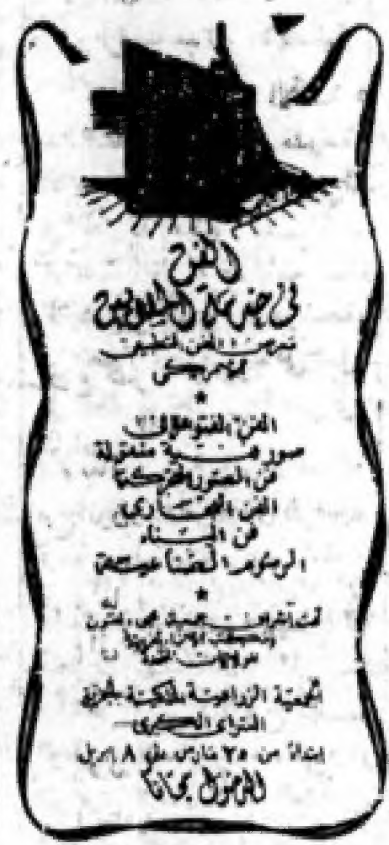 الفن
فى خدمة الملايين
معرض الفن التطبيقى
الأمريكى
الفن الفتوغرافى
صور فنية منقولة
فن الصور المتحركة
الفن التجارى
فن البناء
الرسوم الصناعية
تحت اشراف جمعية محبى الفنون
الولايات المتحدة
الجمعية الزراعية الملكية بالجزيرة
السراى الكبرى
ابتداء من ٢٥ مارس الى ٨ ابريل
الدخول مجانا